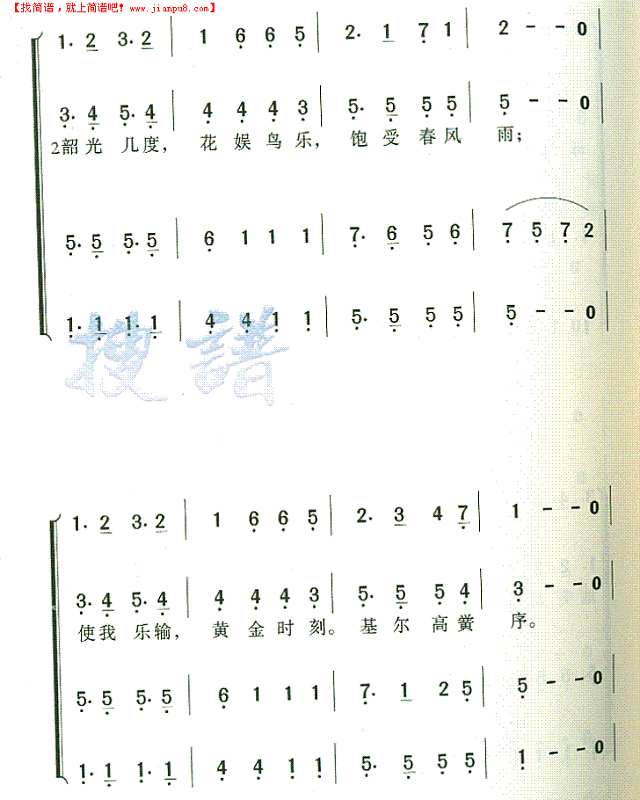 【找简谱，就上简谱吧! www.jianpu8.com】
1. 2 3. 2 | 1 6 6 5 | 2. 1 7 1 | 2 - - 0 |
3. 4 5. 4 | 4 4 4 3 | 5. 5 5 5 | 5 - - 0 |
2韶光 几度, 花 娱 鸟 乐, 饱 受 春 风 雨;
5. 5 5. 5 | 6 1 1 1 | 7. 6 5 6 | 7 5 7 2 |
1. 1 1. 1 | 4 4 1 1 | 5. 5 5 5 | 5 - - 0 |
搜譜
1. 2 3. 2 | 1 6 6 5 | 2. 3 4 7 | 1 - - 0 |
3. 4 5. 4 | 4 4 4 3 | 5. 5 5 4 | 3 - - 0 |
使我 乐输, 黄 金 时 刻。 基 尔 高 黉 序。
5. 5 5. 5 | 6 1 1 1 | 7. 1 2 5 | 5 - - 0 |
1. 1 1. 1 | 4 4 1 1 | 5. 5 5 5 | 1 - - 0 |